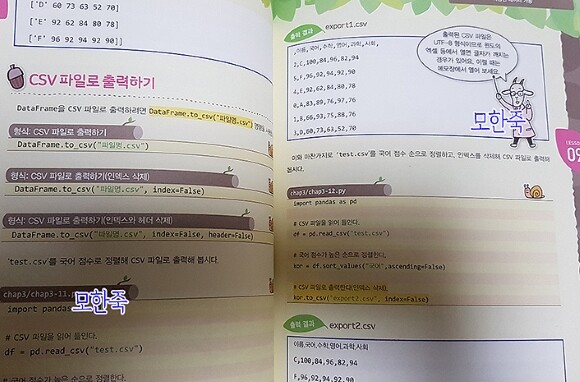 ['D' 60 73 63 52 70]
['E' 92 62 84 80 78]
['F' 96 92 94 92 90]]
CSV 파일로 출력하기
DataFrame을 CSV 파일로 출력하려면 DataFrame.to_csv("파일명.csv")
형식: CSV 파일로 출력하기
DataFrame.to_csv("파일명.csv")
형식: CSV 파일로 출력하기(인덱스 삭제)
DataFrame.to_csv("파일명.csv", index=False)
형식: CSV 파일로 출력하기(인덱스와 헤더 삭제)
DataFrame.to_csv("파일명.csv", index=False, header=False)
'test.csv'를 국어 점수로 정렬해 CSV 파일로 출력해 봅시다.
chap3/chap3-11.py
모한죽
import pandas
# CSV 파일을 읽어 들인다.
df = pd.read_csv("test.csv")
# 국어 점수가 높은 순으로 정렬한다.
출력 결과 export1.csv
,이름,국어,수학,영어,과학,사회
2,C,100,84,96,82,94
5,F,96,92,94,92,90
4,E,92,62,84,80,78
0,A,83,89,76,97,76
1,B,66,93,75,88,76
3,D,60,73,63,52,70
출력된 CSV 파일은
UTF-8 형식이므로 윈도의
엑셀 등에서 열면 글자가 깨지는
경우가 있어요. 이럴 때는
메모장에서 열어 보세요.
모한죽
이와 마찬가지로 'test.csv'를 국어 점수 순으로 정렬하고, 인덱스를 삭제해 CSV 파일로 출력해
봅시다.
chap3/chap3-12.py
import pandas as pd
# CSV 파일을 읽어 들인다.
df = pd.read_csv("test.csv")
# 국어 점수가 높은 순으로 정렬한다.
kor = df.sort_values("국어",ascending=False)
# CSV 파일로 출력한다(인덱스 삭제).
kor.to_csv("export2.csv", index=False)
출력 결과 export2.csv
이름,국어,수학,영어,과학,사회
C,100,84,96,82,94
F,96,92,94,92,90
LESSON
09